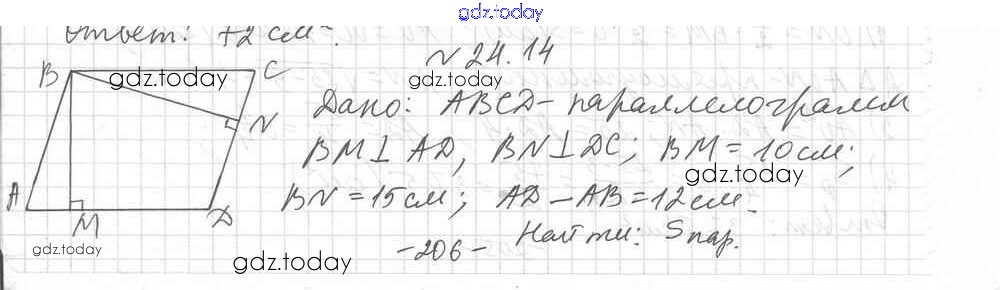 gdz.today
Ответ: 72 см².
№ 24.14
gdz.today
B C
gdz.today
Дано: ABCD - параллелограмм
N
BM⊥AD, BN⊥DC; BM = 10 см;
gdz.today
A M D
BN = 15 см; AD - AB = 12 см.
Найти: Sпар.
gdz.today
- 206 -
gdz.today